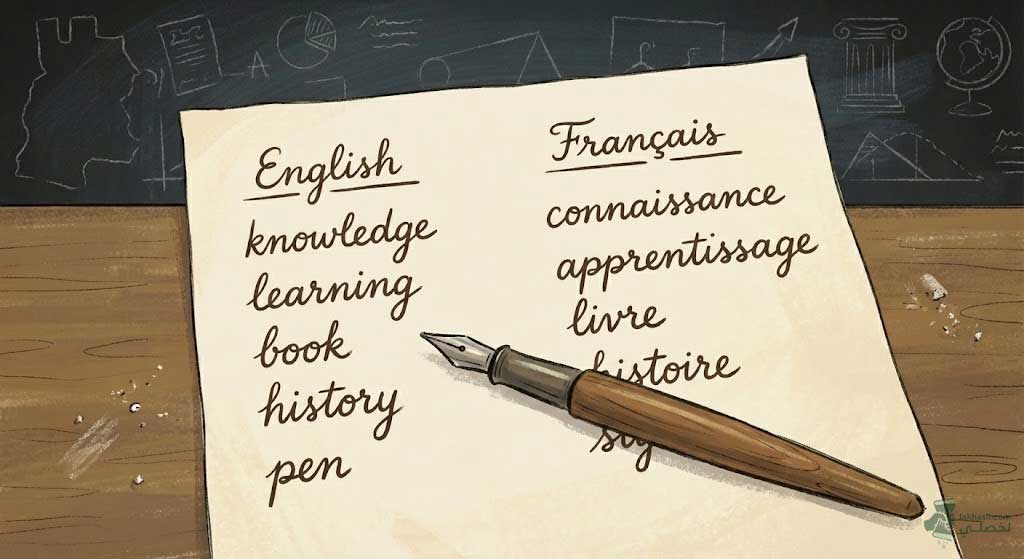 English
knowledge
learning
book
history
pen
Français
connaissance
apprentissage
livre
histoire
takhassli.com
تخصلي